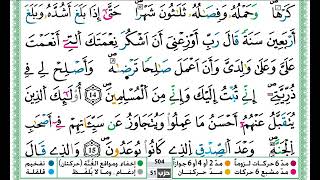 كُرْهًا ۖ وَحَمْلُهُۥ وَفِصَٰلُهُۥ ثَلَٰثُونَ شَهْرًا ۚ حَتَّىٰٓ إِذَا بَلَغَ أَشُدَّهُۥ وَبَلَغَ
أَرْبَعِينَ سَنَةً قَالَ رَبِّ أَوْزِعْنِىٓ أَنْ أَشْكُرَ نِعْمَتَكَ ٱلَّتِىٓ أَنْعَمْتَ
عَلَىَّ وَعَلَىٰ وَٰلِدَىَّ وَأَنْ أَعْمَلَ صَٰلِحًا تَرْضَىٰهُ وَأَصْلِحْ لِى فِى
ذُرِّيَّتِىٓ ۖ إِنِّى تُبْتُ إِلَيْكَ وَإِنِّى مِنَ ٱلْمُسْلِمِينَ ١٤ أُو۟لَٰٓئِكَ ٱلَّذِينَ
يُتَقَبَّلُ عَنْهُمُۥٓ أَحْسَنُ مَا عَمِلُوا۟ وَيُتَجَاوَزُ عَن سَيِّـَٔاتِهِمْ فِىٓ أَصْحَٰبِ
ٱلْجَنَّةِ ۖ وَعْدَ ٱلصِّدْقِ ٱلَّذِى كَانُوا۟ يُوعَدُونَ ١٥ وَٱلَّذِى قَالَ
مدّ 6 حركات لزوماً مدّ 2 أو 4 أو 6 جوازاً 504 إخفاء ومواقع الغُنّة (حركتان) تفخيم
مدّ مشبع 6 حركات مدّ حركتان حزب 51 إدغام، وما لا يُلفظ قلقلة